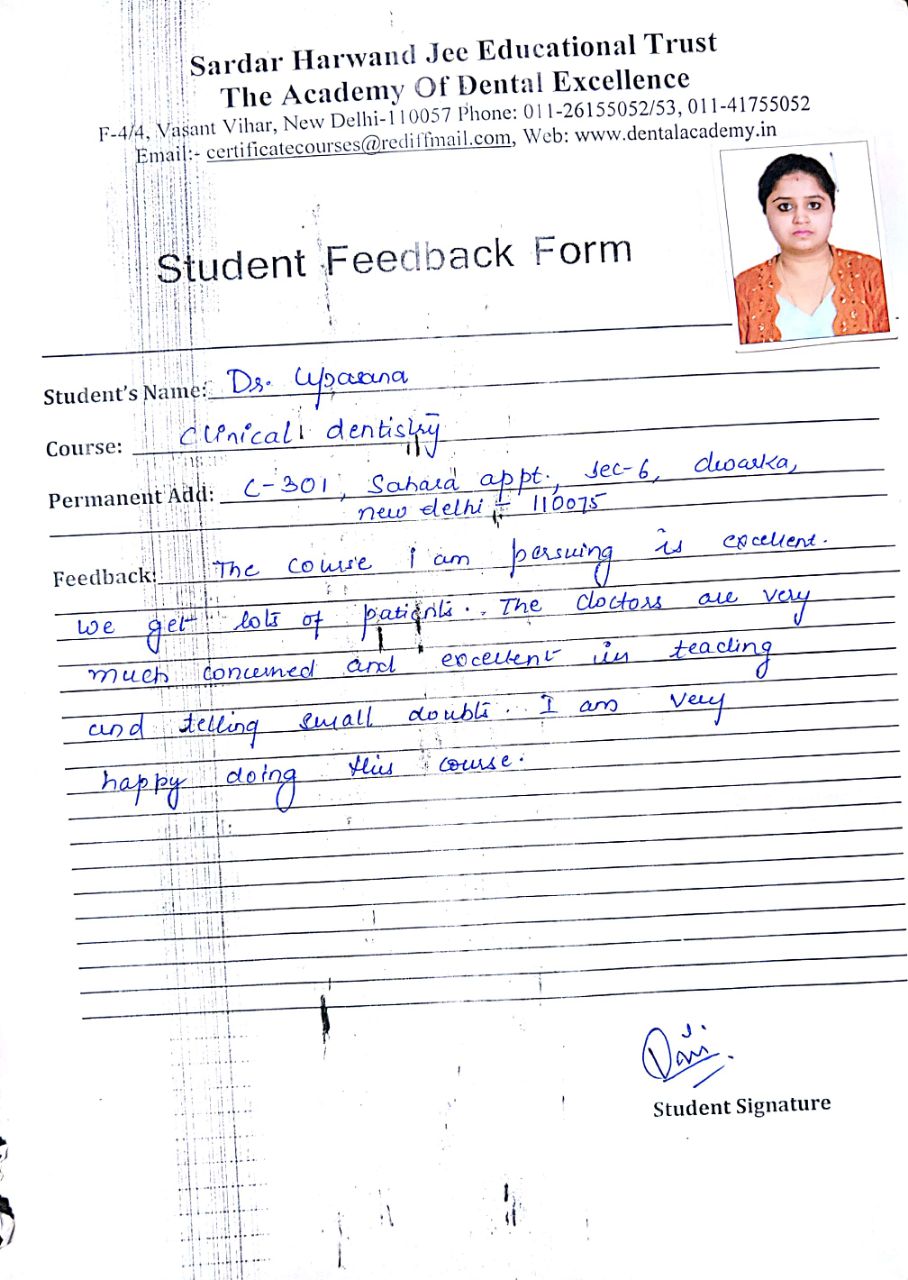 Sardar Harwand Jee Educational Trust
The Academy Of Dental Excellence
F-4/4, Vasant Vihar, New Delhi-110057 Phone: 011-26155052/53, 011-41755052
Email:- certificatecourses@rediffmail.com, Web: www.dentalacademy.in
Student Feedback Form
Student's Name: Dr. Upasana
Course: Clinical dentistry
Permanent Add: C-301, appt., sec-6, dwarka,
new delhi - 110075
Feedback: The course I am persuing is excellent.
we get lots of patients. The doctors are very
much concerned and excellent in teaching
and telling small doubts. I am very
happy doing this course.
Student Signature